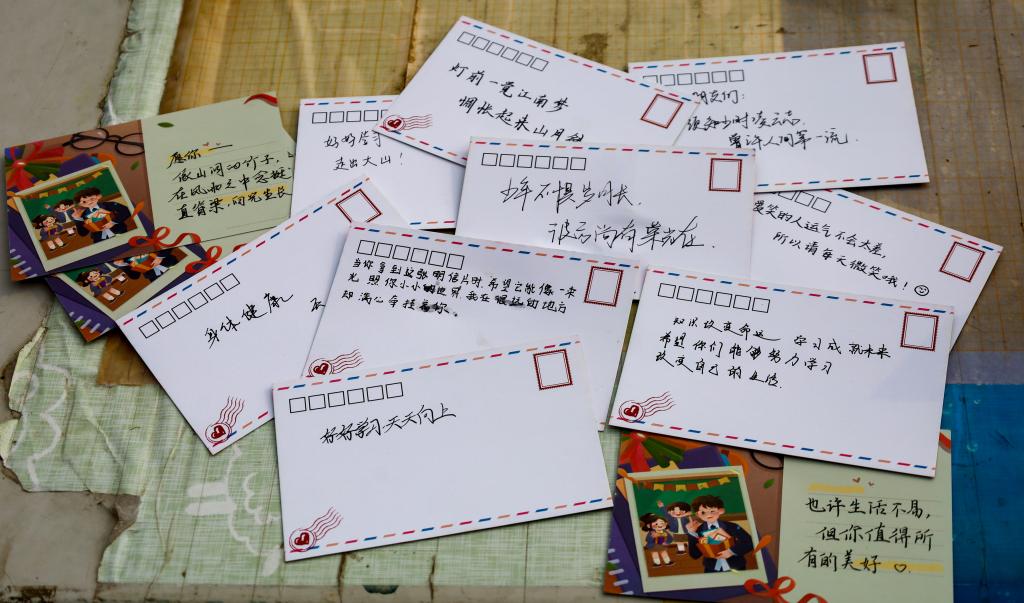 灯前一觉江南梦
惆怅起来山月斜
朋友们:
须知少时凌云志
曾许人间第一流.
好好学习
走出大山!
愿你
像山间的竹子,
在风雨之中
直脊梁,向光生长
少年不惧岁月长,
彼方尚有荣光在.
爱笑的人运气不会太差,
所以请每天微笑哦!
身体健康
当你拿到这张明信片时,希望它能像一束
光,照你小小的世界,我在遥远的地方
却满心牵挂着你.
知识改变命运 学习成就未来
希望你们能够努力学习
改变自己的生活.
好好学习天天向上
也许生活不易,
但你值得所
有的美好